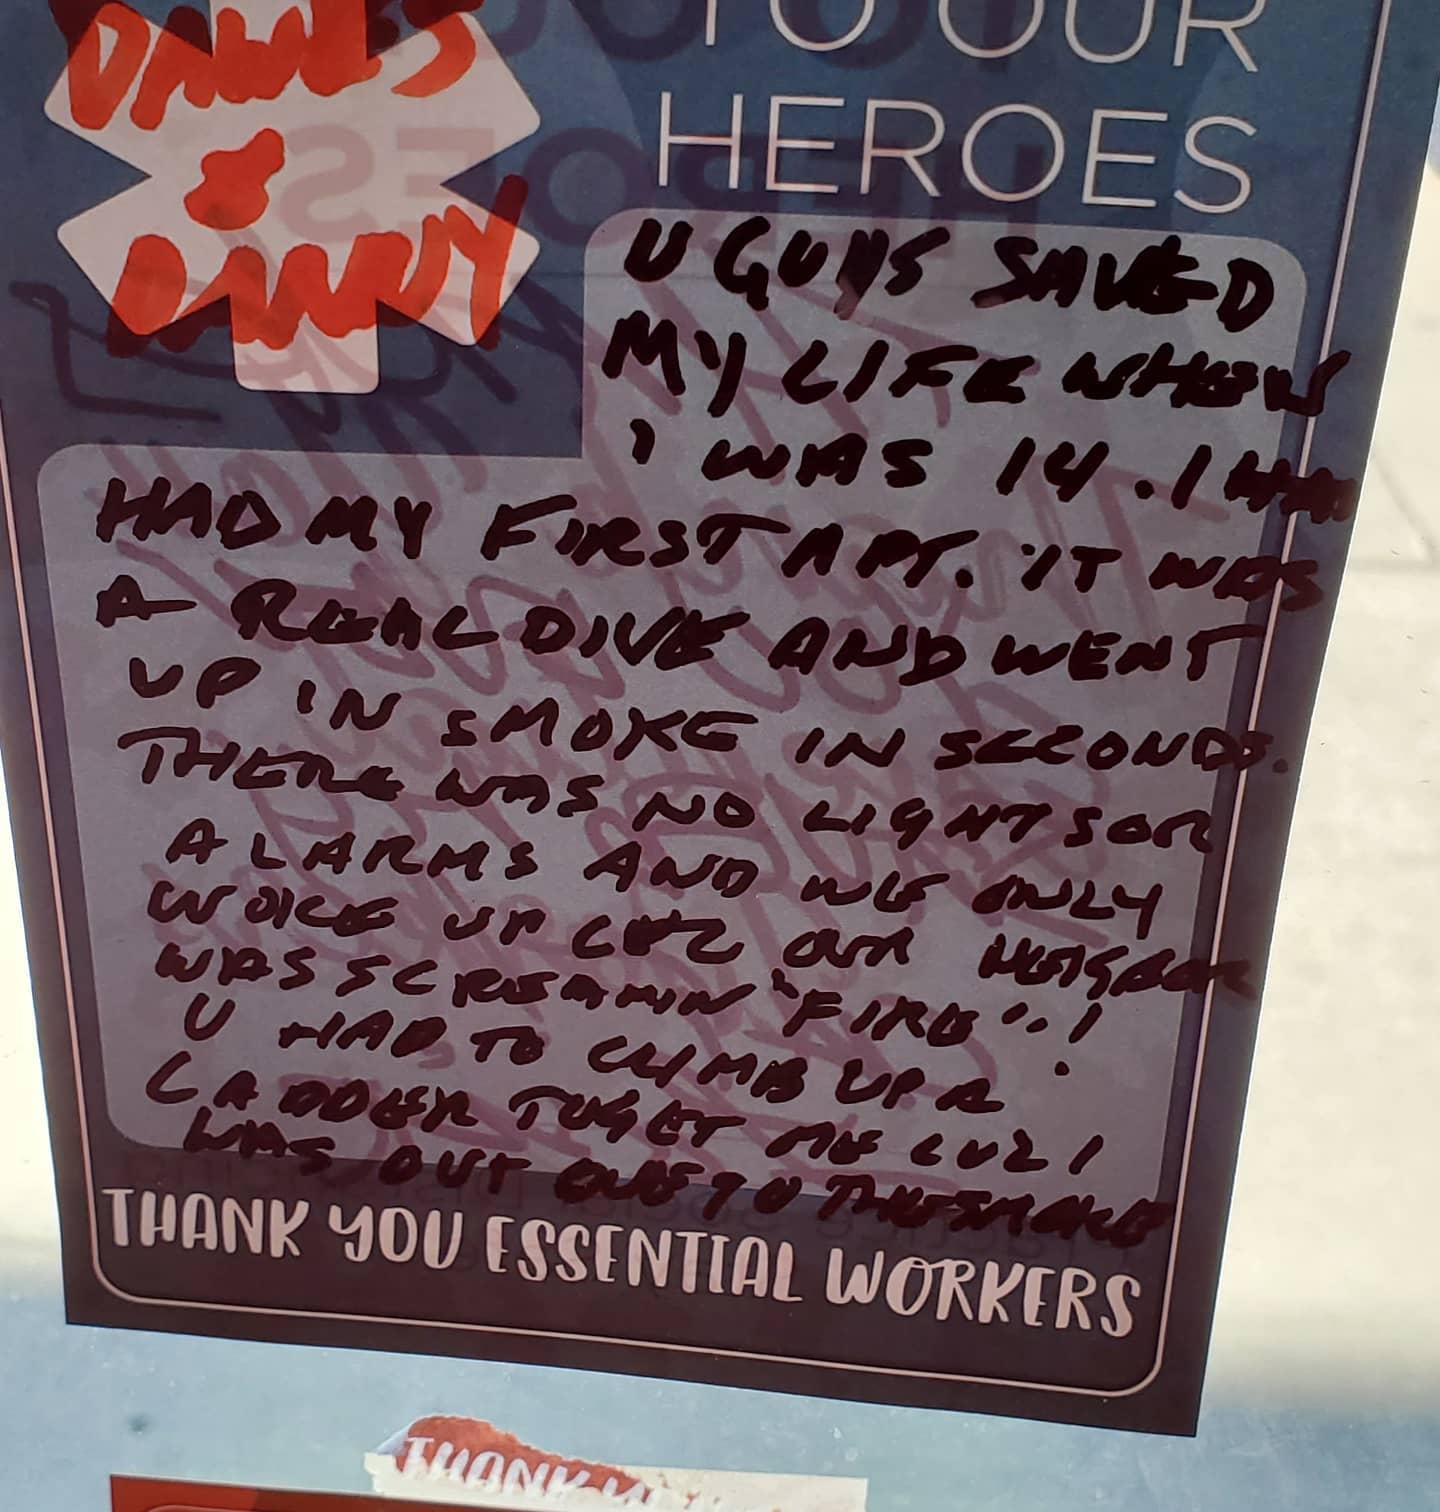 TO OUR
HEROES
DAWES
&
DANNY
U GUYS SAVED
MY LIFE WHEN
I WAS 14. I HAD
HAD MY FIRST APT. IT WAS
A REAL DIVE AND WENT
UP IN SMOKE IN SECONDS.
THERE WAS NO LIGHTS OR
ALARMS AND WE ONLY
WOKE UP CUZ OUR NEIGBOR
WAS SCREAMIN "FIRE"!
U HAD TO CLIMB UP A
LADDER TO GET ME CUZ I
WAS OUT DUE TO THE SMOKE
THANK YOU ESSENTIAL WORKERS
THANK